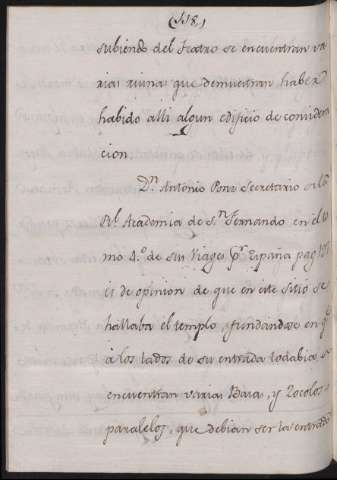 (118)
subiendo del Teatro se encuentran va
rias ruinas que demuestran haber
habido alli algun edificio de considera
cion
Dn. Antonio Ponz Secretario de la
Rl. Academia de Sn. Fernando en el to
mo 4.º de sus Viages pr. España pag
es de opinion de que en este sitio se
hallaba el templo, fundandose en qe
á los lados de su entrada todabia se
encuentran varias Basas, y Zocolos
paralelos, que debian ser las entradas